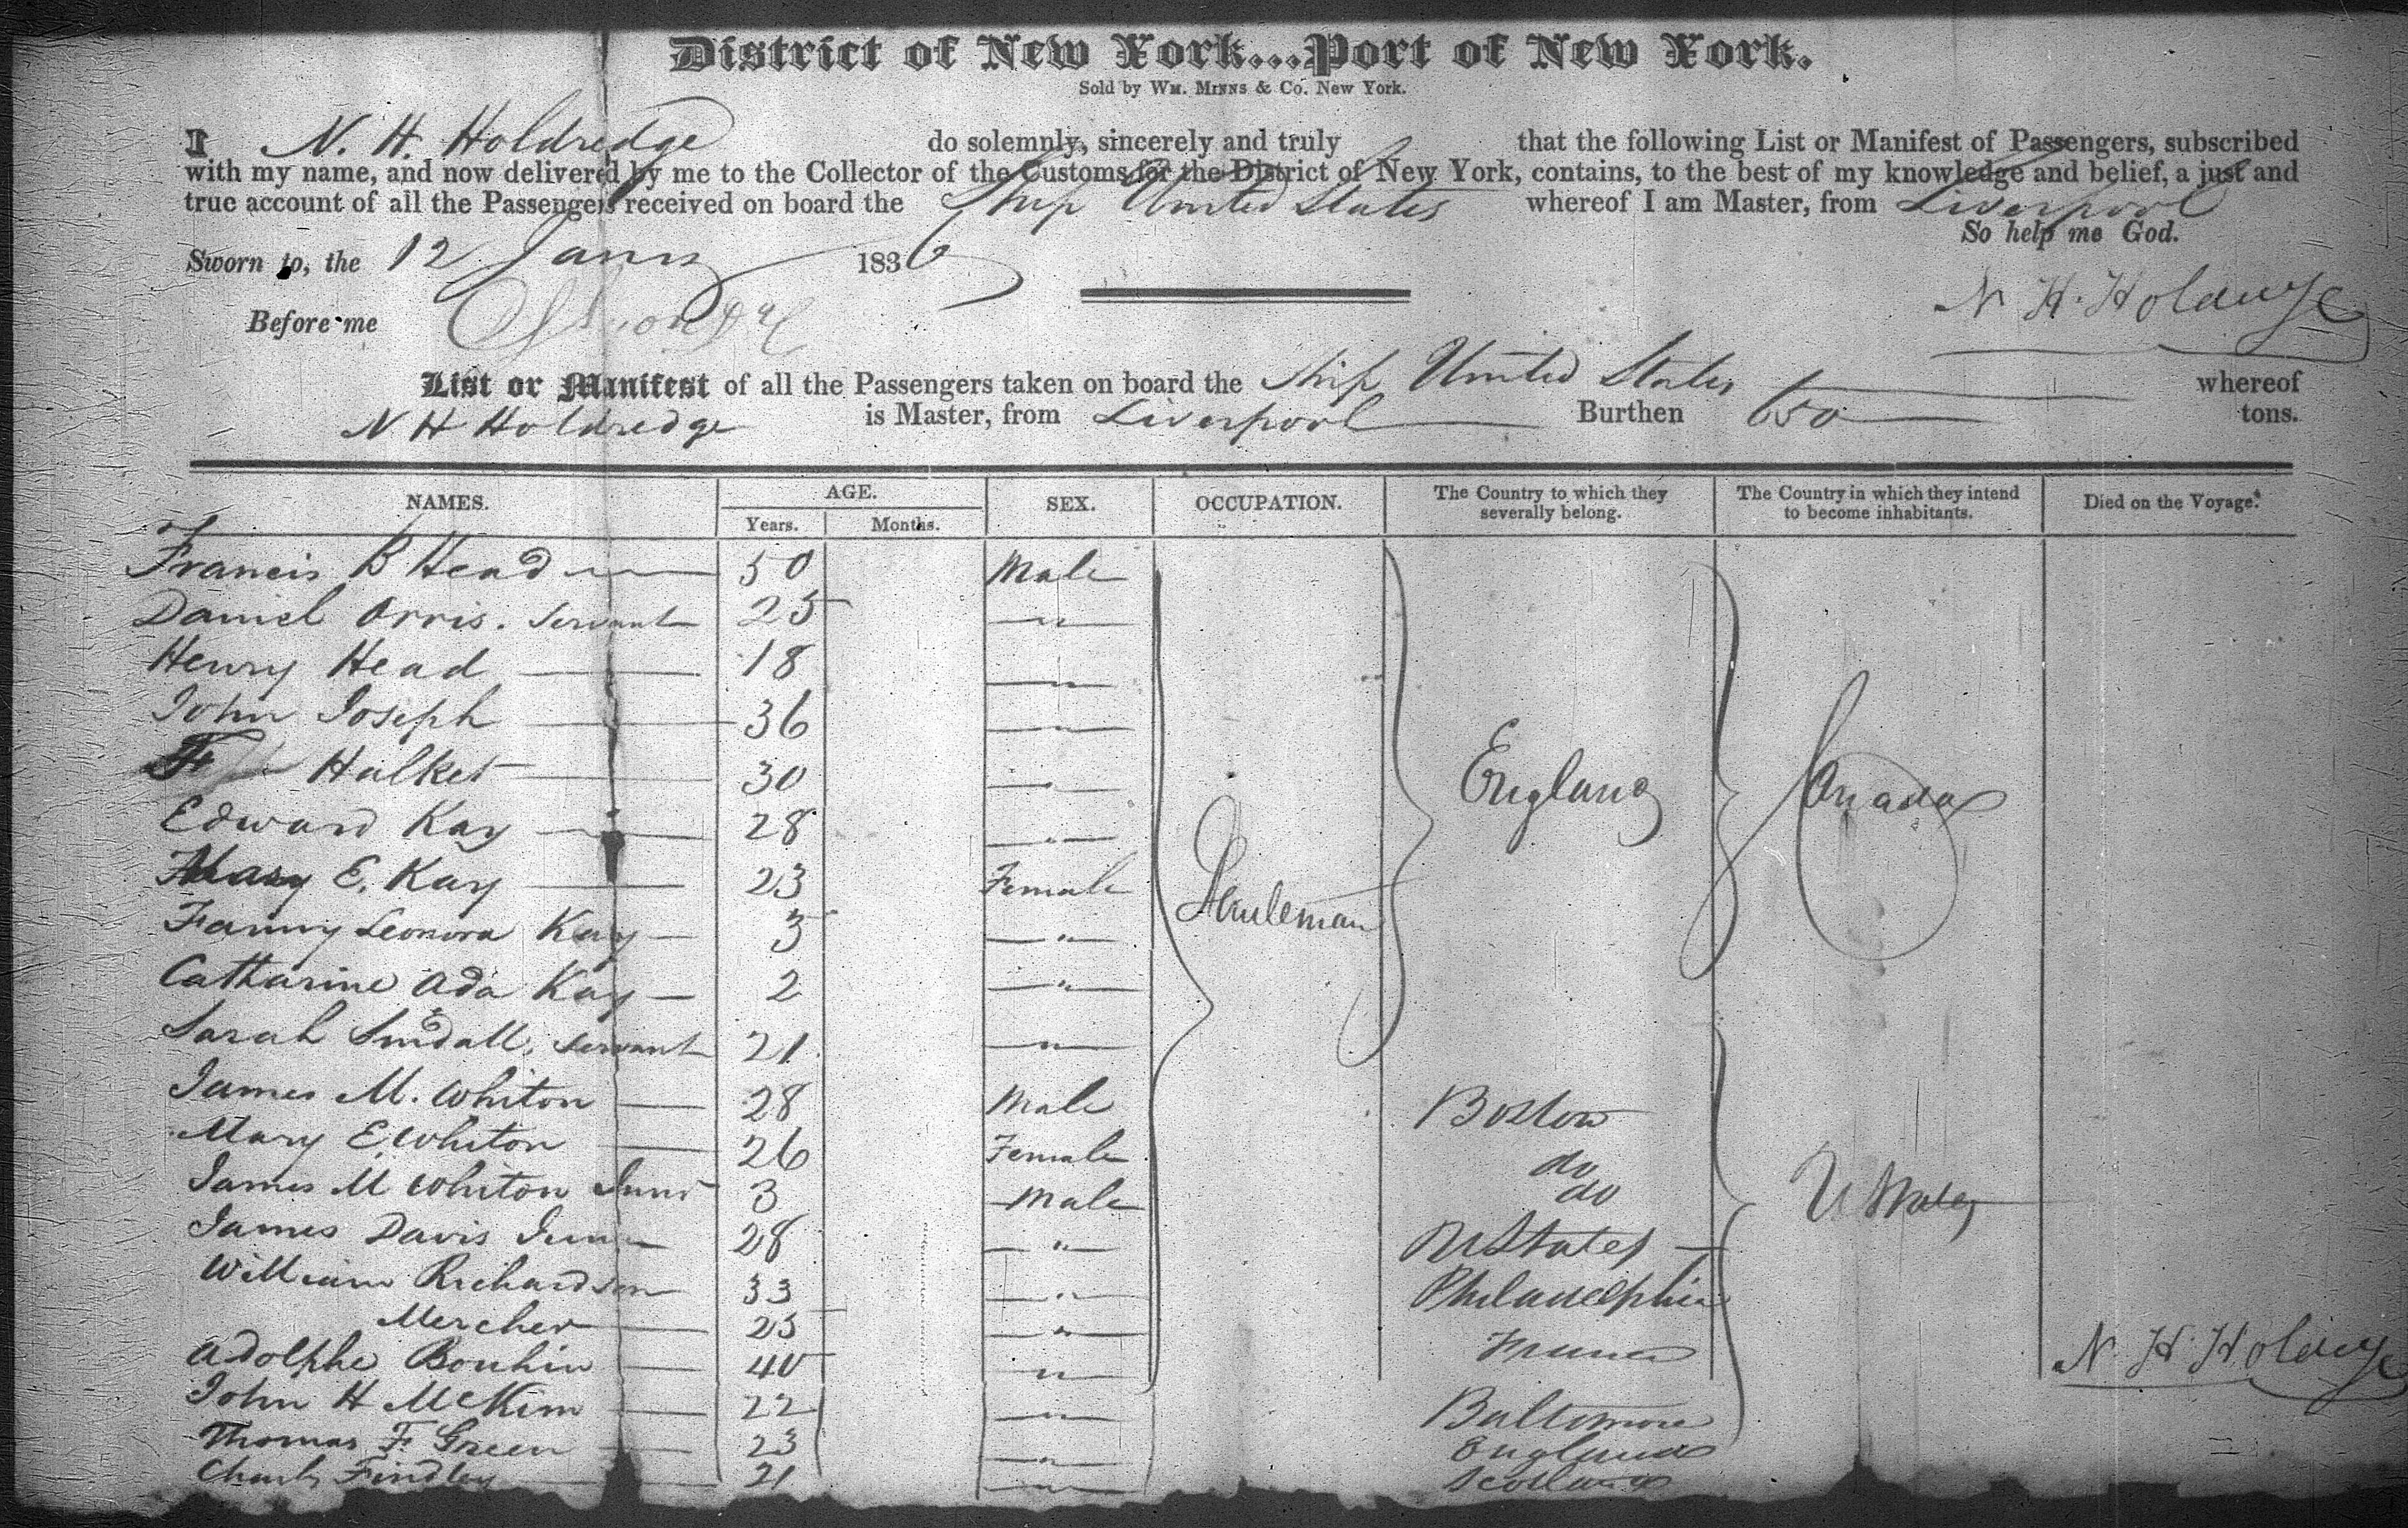 District of New York...Port of New York.
Sold by WM. MINNS & Co. New York.
I N. H. Holdredge do solemnly, sincerely and truly that the following List or Manifest of Passengers, subscribed
with my name, and now delivered by me to the Collector of the Customs for the District of New York, contains, to the best of my knowledge and belief, a just and
true account of all the Passengers received on board the Ship United States whereof I am Master, from Liverpool
So help me God.
Sworn to, the 12 Jany 1836
N. H. Holdredge
Before me
List or Manifest of all the Passengers taken on board the Ship United States whereof
N H Holdredge is Master, from Liverpool Burthen 650 tons.
NAMES. AGE. Years. Months. SEX. OCCUPATION. The Country to which they severally belong. The Country in which they intend to become inhabitants. Died on the Voyage.
Francis B Head 50 Male
Daniel Orris. Servant 25 "
Henry Head 18 "
John Joseph 36 "
Halket 30 "
Edward Kay 28 "
England Canada
Mary E. Kay 23 Female
Gentleman
Fanny Leonora Kay 3 "
Catharine Ada Kay 2 "
Sarah Smdall, Servant 21 "
James M. Whiton 28 Male Boston
Mary E. Whiton 26 Female do
James M Whiton Junr 3 Male do
U States
James Davis Junr 28 " U States
William Richardson 33 " Philadelphia
Mercher 25 "
Adolphe Bouhin 40 " France
N. H. Holdredge
John H McKim 22 " Baltimore
Thomas F. Green 23 " England
Charls Findley 21 " Scotland